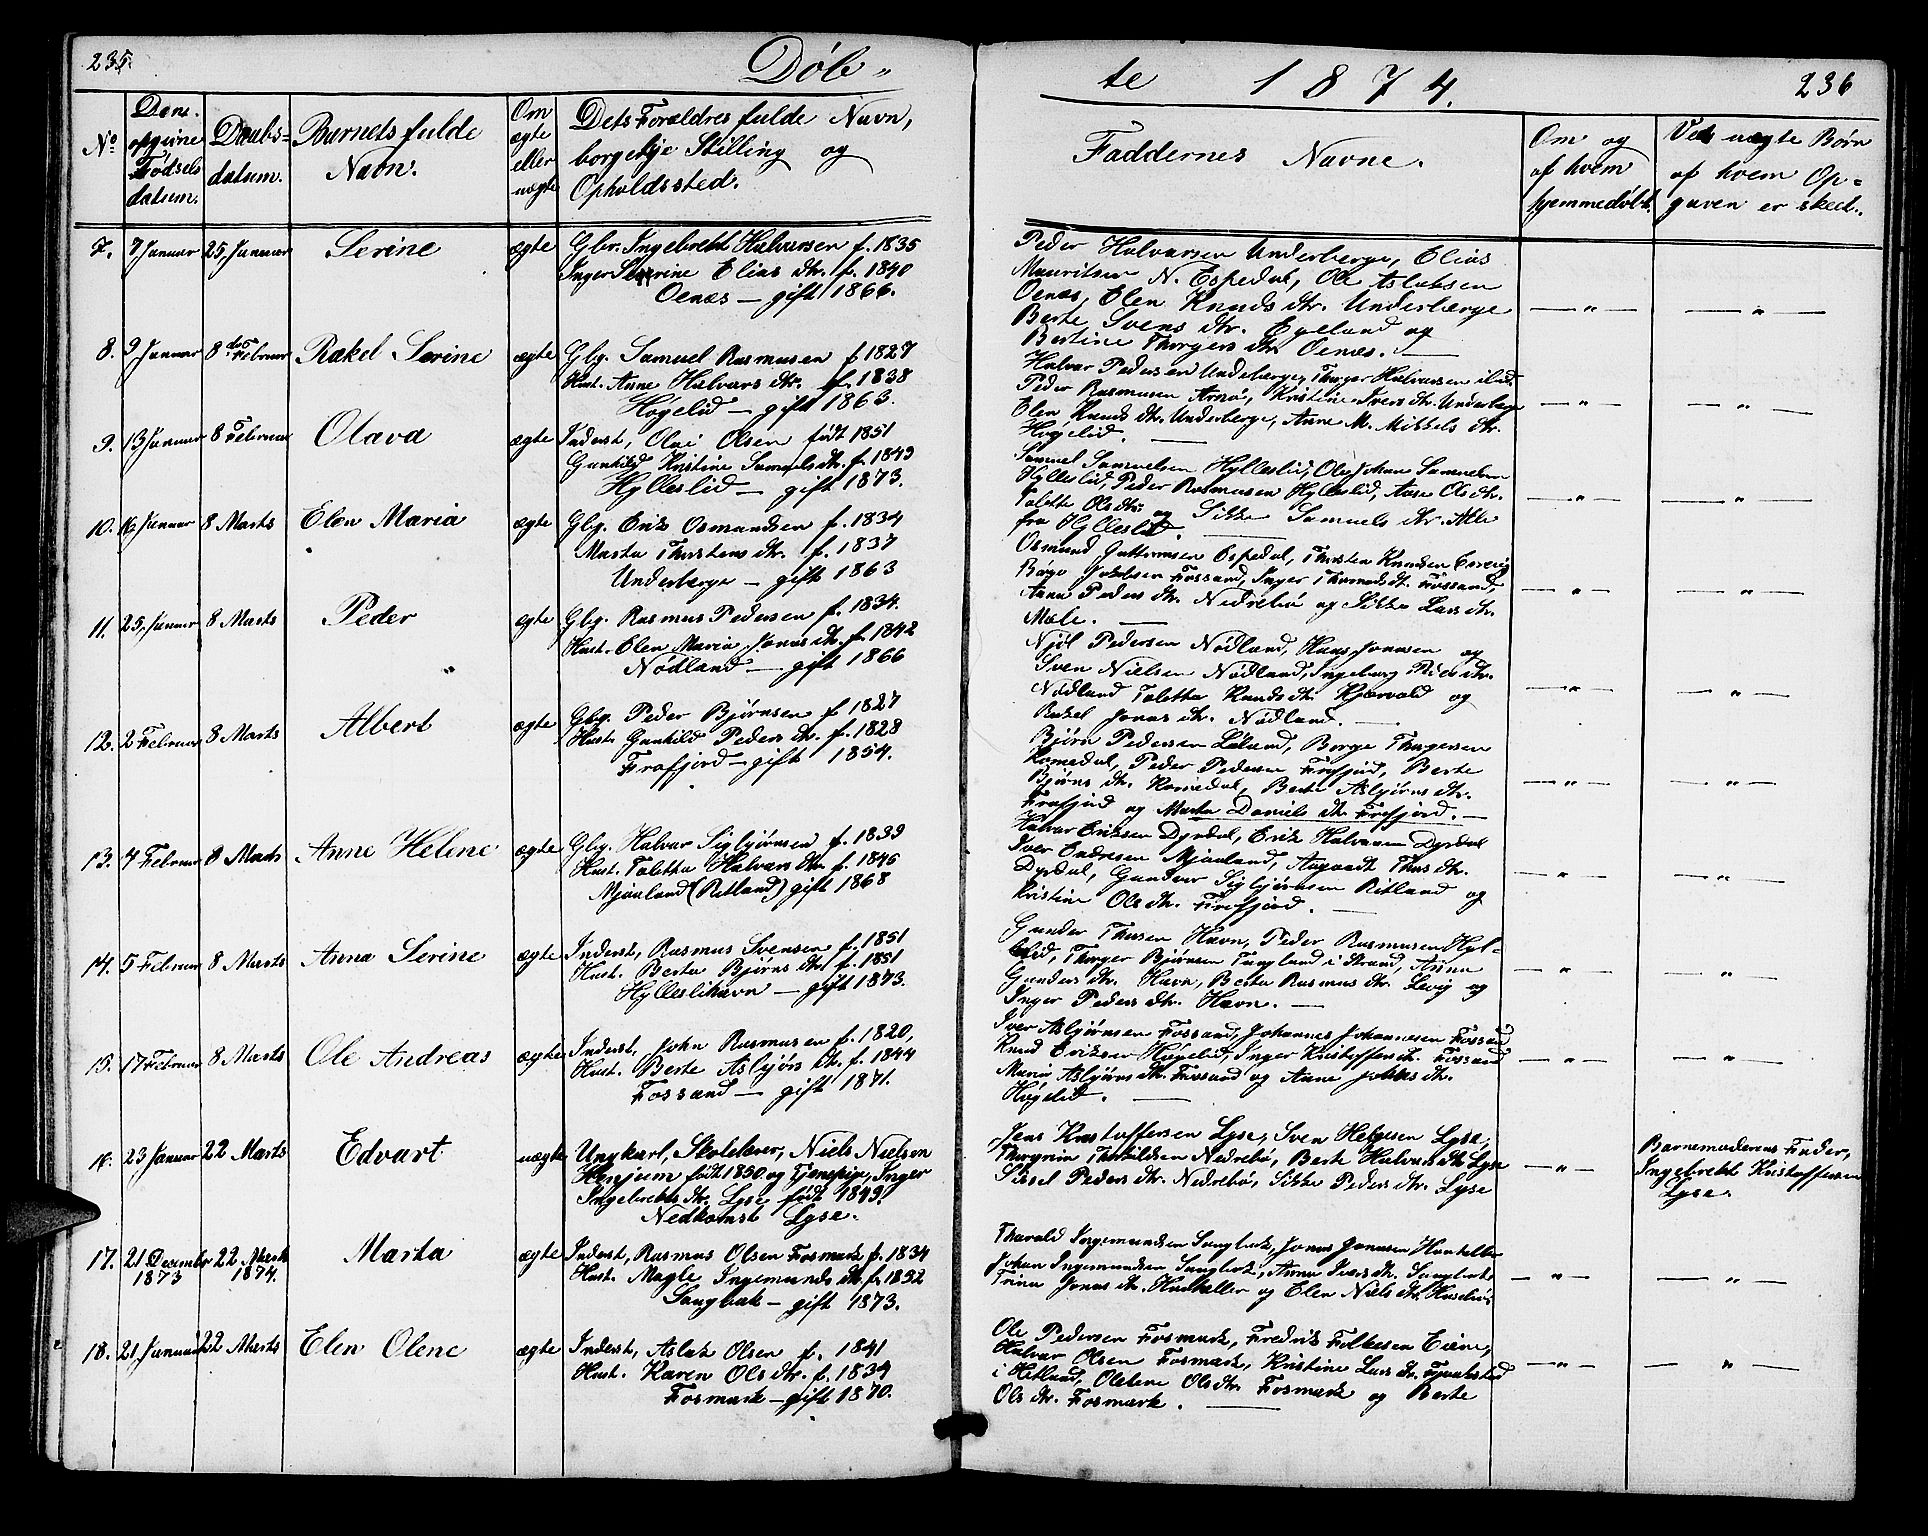 235.
Døb-
te 1874.
236
No
Den opgivne Fødsels datum.
Daabs-datum.
Barnets fulde Navn.
Om ægte eller uægte
Dets Forældres fulde Navn, borgerlige Stilling og Opholdssted.
Faddernes Navne.
Om og af hvem hjemmedøbt.
Ved uægte Børn af hvem Op-gaven er skeet.
7. 7 Januar 25, Januar Serine ægte Gbr. Ingebrekt Halvarsen f. 1835
Inger Serine Elias dtr. f. 1840
Oenæs — gift 1866.
Peder Halvarsen Underberge, Elias
Mauritsen N. Espedal, Ole Aslaksen
Oenæs, Elen Knuds dtr. Underberge
Berte Svens dtr. Eyeland og
Bertine Thorgers dtr. Oenæs. —
— " — — " —
8. 9 Januar 8de Februar Rakel Serine ægte Gbg. Samuel Rasmusen f 1827
Hust. Anne Halvars dtr. f. 1838
Høgelid — gift 1863.
Halvar Pedersen Underberge, Thorger Halvarsen ibid.
Peder Rasmusen Arnø, Kristine Ivers dtr. Underberge
Elen Knuds dtr. Underberge, Anne M. Mikkels dtr.
Høgelid. —
— " — — " —
9. 13 Januar 8 Februar Olava ægte Inderst, Olai Olsen født 1851
Gunhild Kristine Samuels dtr. f. 1849
Hylleslid — gift 1873.
Samuel Samuelsen Hylleslid, Ole Johan Samuelsen
Hylleslid, Peder Rasmusen Hylleslid, Anne Ols dtr.
Taletta Ols dtr. og Sikke Samuels dtr. Alle
fra Hylleslid. —
— " — — " —
10. 16 Januar 8 Marts Elen Maria ægte Gbg. Erik Osmundsen f. 1834
Marta Thorstens dtr. f. 1837
Underberge — gift 1863
Osmund Guttormsen Espedal, Thorsten Knudsen
Børge Jakobsen Fossand, Inger Thomas dtr. Fossand,
Anne Peders dtr. Nedrebø og Sikke Lars dtr.
Mæle. —
— " — — " —
11. 25, Januar 8 Marts Peder ægte Gbg. Rasmus Pedersen f. 1834.
Hust. Elen Maria Jonas dtr. f. 1842
Nødland — gift 1866
Njøl Pedersen Nødland, Hans Jonasen og
Sven Nielsen Nødland, Ingeborg dtr.
Nødland Taletta Knuds dtr. Kjærvold og
Rakel Jonas dtr. Nødland. —
— " — — " —
12. 2 Februar 8 Marts Albert ægte Gbg. Peder Bjørnsen f 1827
Hust. Gunhild Peders dtr. f. 1828
Frafjord — gift 1854.
Bjørn Pedersen Børge Thorgersen
Romedal, Peder Pedersen Frafjord, Berte
Bjørns dtr. Romedal, Berte Asbjørns dtr.
Frafjord og Marta Daniels dtr. Frafjord. —
— " — — " —
13. 4 Februar 8 Marts Anne Helene ægte Gbg. Halvar Sigbjørnsen f. 1839
Hust. Taletta Halvars dtr. f. 1846
Mjønland (Ritland) gift 1868
Halvar Eriksen Dyrdal, Erik Halvarsen Dyrdal
Iver Endresen Mjønland, Aagaadt Thors dtr.
Dyrdal, Gunder Sigbjørnsen Ritland og
Kristine Ols dtr. Frafjord. —
— " — — " —
14. 5 Februar 8 Marts Anna Serine ægte Inderst, Rasmus Svensen f. 1851
Hust. Berta Bjørns dtr. f. 1851
Hylleslihavn — gift 1873.
Gunder Thorsen Havn, Peder Rasmusen Hyl-
leslid, Thorger Bjørnsen Tungland i Strand, Anna
Gunders dtr. Havn, Berta Rasmus dtr. Levig og
Inger Peders dtr. Havn. —
— " — — " —
15. 17 Februar 8 Marts Ole Andreas ægte Inderst, John Rasmusen f. 1820,
Hust. Berte Asbjørs dtr. f. 1844
Fossand — gift 1871.
Iver Asbjørnsen Fossand, Johannes Johannesen Fossand
Knud Eriksen Høgelid, Inger Kristoffers dtr. Fossand
Maria Asbjørns dtr. Fossand og Anne Johns dtr.
Høgelid. —
— " — — " —
16. 23 Januar 22 Marts Edvart uægte Ungkarl, Skolelærer, Niels Nielsen
Henjum født 1850 og Tjenepige, Inger
Ingebrekts dtr. Lyse født 1849.
Nedkomst Lyse.
Jens Kristoffersen Lyse, Sven Helgesen Lyse,
Thorgrim Thorkildsen Nedrebø, Berte Halvars dtr. Lyse
Sissel Peders dtr. Nedrebø, Sikke Peders dtr. Lyse
— " —
Barnemoderens Fader,
Ingebrekt Kristoffersen
Lyse.
17. 21 December 1873 22 Marts 1874. Marta ægte Inderst, Rasmus Olsen Fosmark f. 1834
Hust. Magle Ingemunds dtr. f. 1832
Sangbak — gift 1873.
Tharald Ingemundsen Sangbak, Jonas Jonasen Hunkeller
Johan Ingemundsen Sangbak, Anna Ivers dtr. Sangbak,
Trina Jonas dtr. Hunkeller og Elen Niels dtr. Husebø.
— " — — " —
18. 21 Januar 22 Marts Elen Olene ægte Inderst, Aslak Olsen f. 1841
Hust. Karen Ols dtr. f. 1834
Fosmark — gift 1870.
Ole Pedersen Fosmark, Fredrik Falkesen Eiene,
Halvar Olsen Fosmark, Kristine Lars dtr.
i Hetland, Olene Ols dtr. Fosmark og Berte
Ols dtr. Fosmark. —
— " — — " —